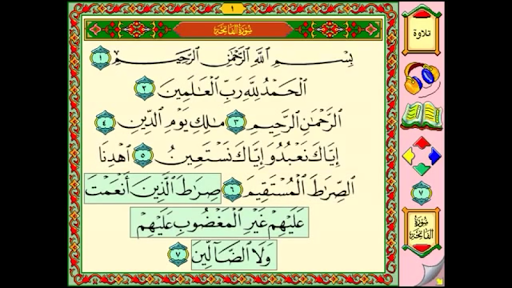 ١
سُورَةُ الفَاتِحَةِ
بِسْمِ ٱللَّهِ ٱلرَّحْمَٰنِ ٱلرَّحِيمِ ١
ٱلْحَمْدُ لِلَّهِ رَبِّ ٱلْعَٰلَمِينَ ٢
ٱلرَّحْمَٰنِ ٱلرَّحِيمِ ٣ مَٰلِكِ يَوْمِ ٱلدِّينِ ٤
إِيَّاكَ نَعْبُدُ وَإِيَّاكَ نَسْتَعِينُ ٥ ٱهْدِنَا
ٱلصِّرَٰطَ ٱلْمُسْتَقِيمَ ٦ صِرَٰطَ ٱلَّذِينَ أَنْعَمْتَ
عَلَيْهِمْ غَيْرِ ٱلْمَغْضُوبِ عَلَيْهِمْ
وَلَا ٱلضَّآلِّينَ ٧
تلاوة
٧
سُورَةُ
الفَاتِحَةِ